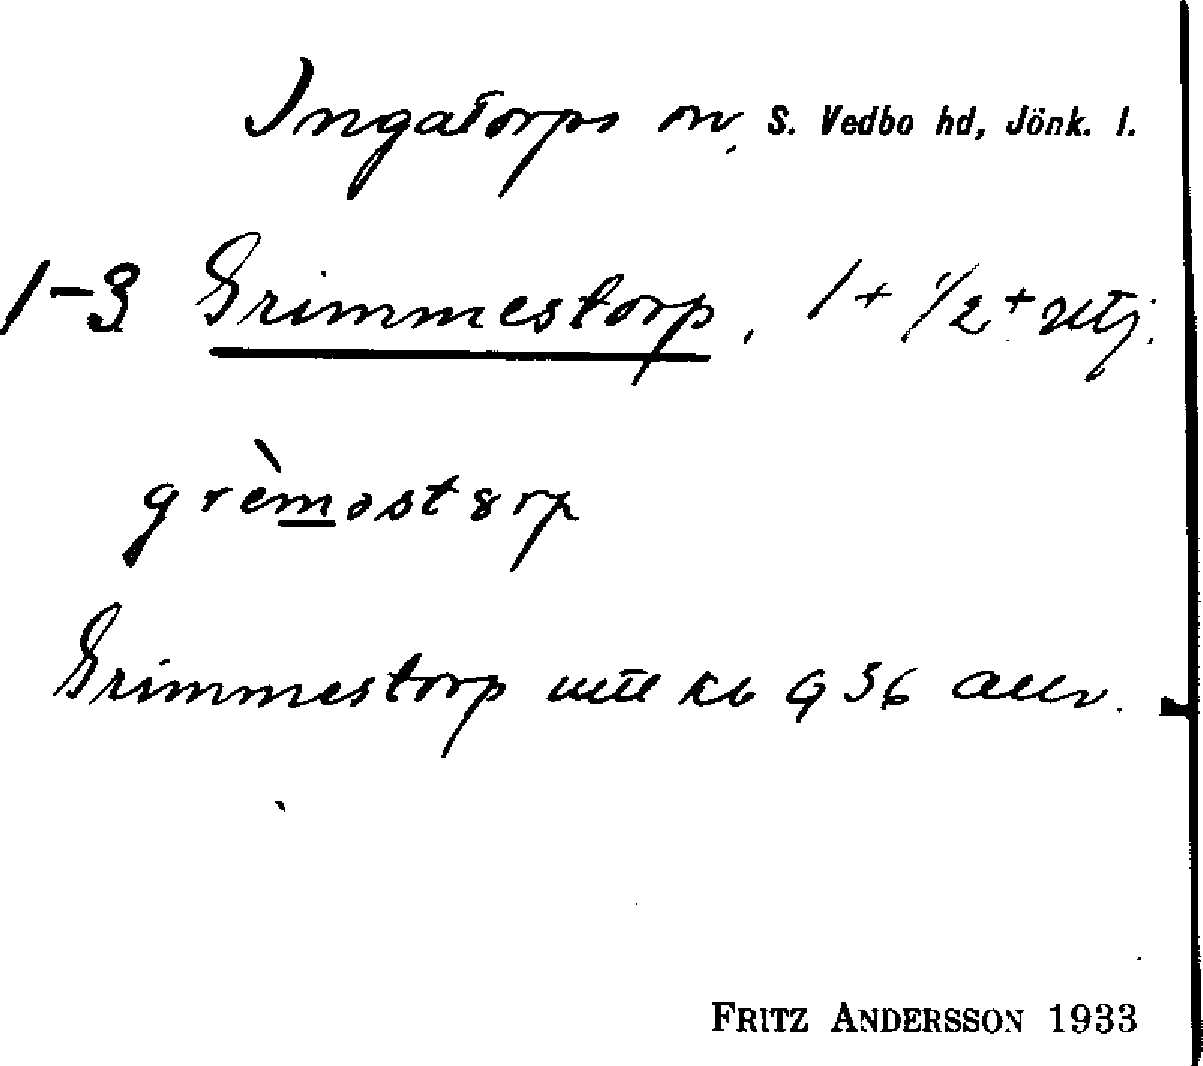 Ingatorps sn, S. Vedbo hd, Jönk. l.
1-3 Grimmestorp. 1 + 1/2 + utj.
grèməst8rp
Grimmestorp uttl kb
FRITZ ANDERSSON 1933